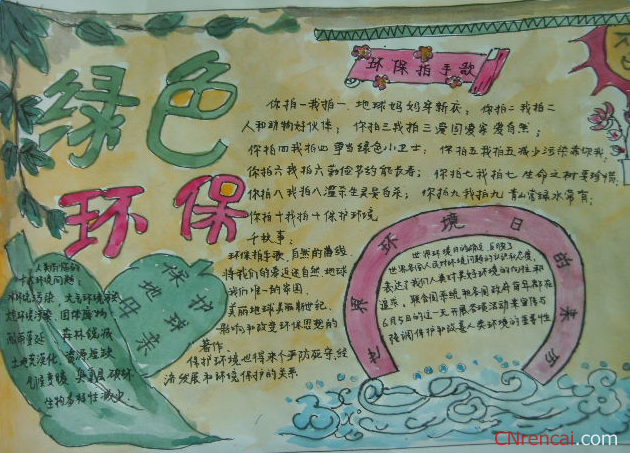 绿色
环保
环保拍手歌
你拍一我拍一 地球妈妈穿新衣; 你拍二我拍二
人和动物好伙伴; 你拍三我拍三 爱国爱家爱自然;
你拍四我拍四 争当绿色小卫士; 你拍五我拍五 减少污染
你拍六我拍六 勤俭节约能长寿; 你拍七我拍七 生命之树要珍惜
你拍八我拍八 滥杀生灵
你拍九我拍九 青山常绿水常有;
你拍十我拍十 保护环境
环保拍手歌、自然的
将我们的 自然 地球
我们唯一的家园、
美丽地球美丽新世纪、
影响和改变环保思想的
著作、
保护环境也得来个严防死守、经
济发展和环境保护的关系
保护
地球
母亲
人类面临的
十大环境问题:
大气环境
海洋污染、固体废物、
森林锐减
土地荒漠化、资源短缺
气候变暖、臭氧层破坏
生物多样性减少
世界环境日的来历
世界环境日的确立 反映了
世界各国人民对环境问题的认识和态度,
表达了我们人类对美好环境的向往和
追求, 联合国系统和各国政府每年都在
6月5日的这一天开展各项活动来宣传与
强调保护和改善人类环境的重要性
CNrencai.com